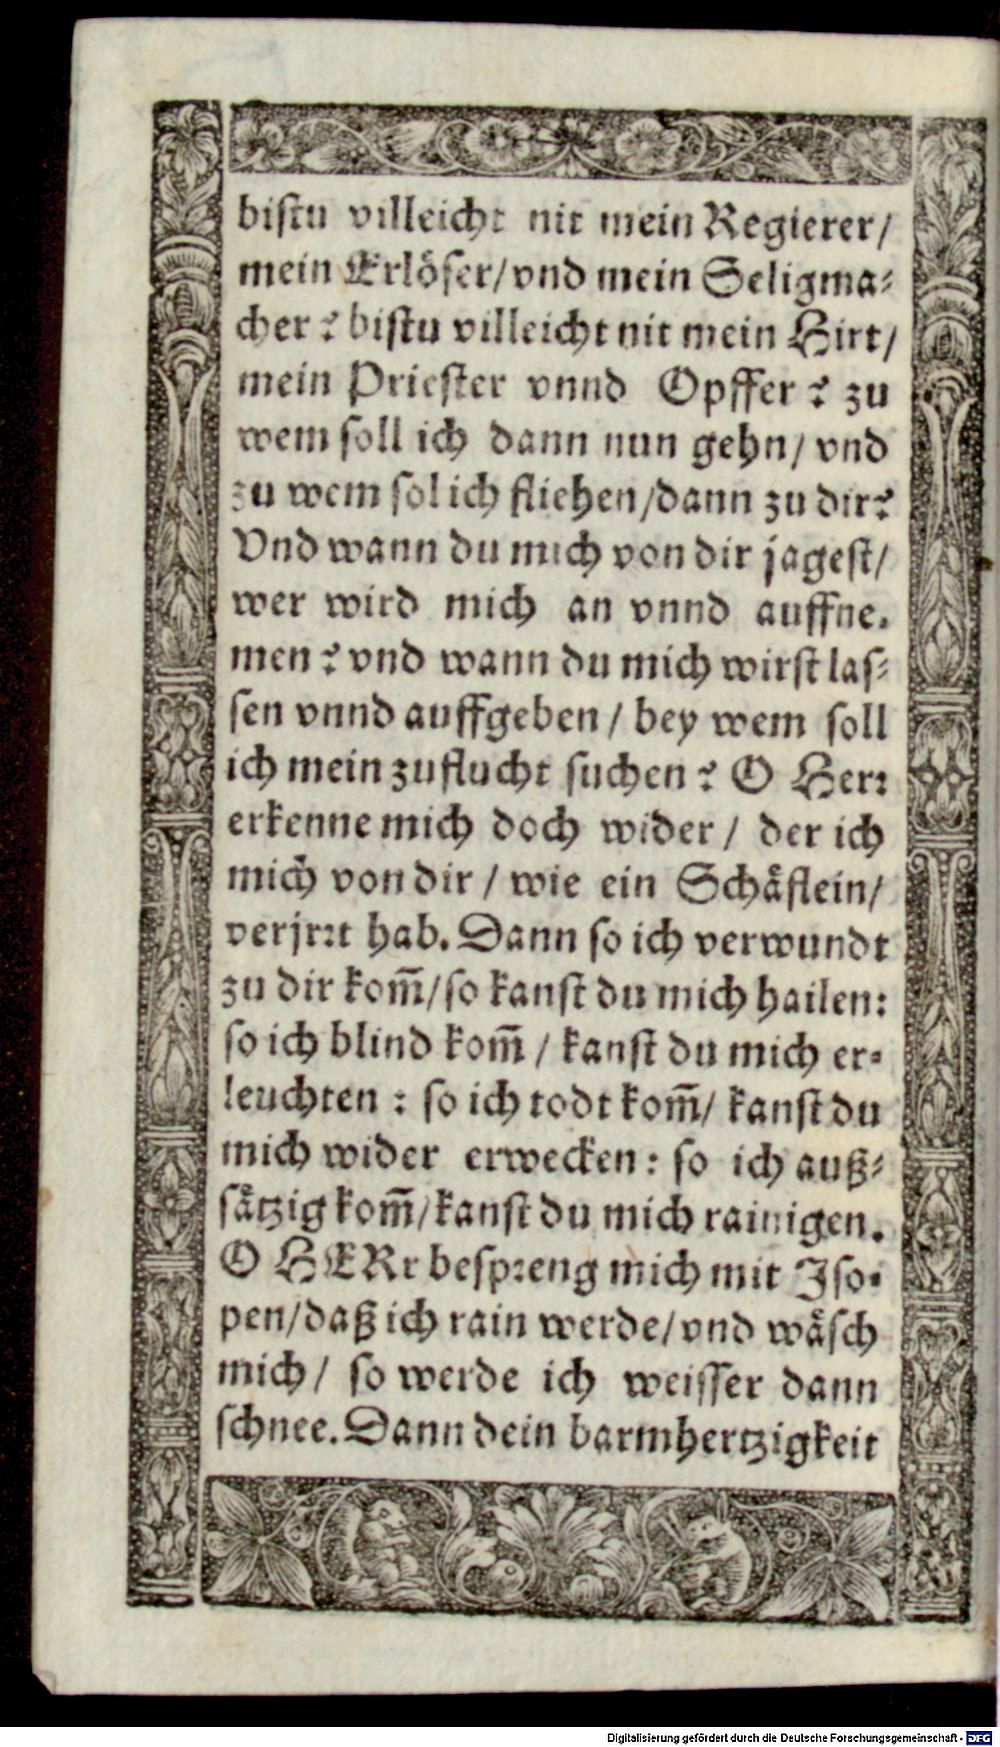 bistu villeicht nit mein Regierer/
mein Erlöser/vnd mein Seligma⸗
cher? bistu villeicht nit mein Hirt/
mein Priester vnnd Opffer? zu
wem soll ich dann nun gehn/ vnd
zu wem sol ich fliehen/dann zu dir?
Vnd wann du mich von dir jagest/
wer wird mich an vnnd auffne.
men? vnd wann du mich wirst las⸗
sen vnnd auffgeben / bey wem soll
ich mein zuflucht suchen? O Herr
erkenne mich doch wider / der ich
mich von dir / wie ein Schäflein/
verjrrt hab. Dann so ich verwundt
zu dir kom̃/so kanst du mich hailen:
so ich blind kom̃ / kanst du mich er⸗
leuchten : so ich todt kom̃/ kanst du
mich wider erwecken: so ich auß⸗
sätzig kom̃/kanst du mich rainigen.
O HERr bespreng mich mit Iso⸗
pen/daß ich rain werde/vnd wäsch
mich/ so werde ich weisser dann
schnee. Dann dein barmhertzigkeit
Digitalisierung gefördert durch die Deutsche Forschungsgemeinschaft - DFG